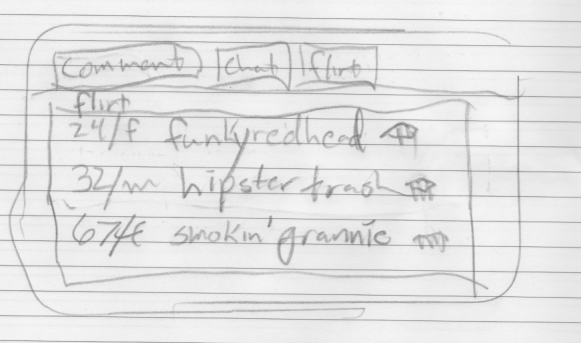 comment chat flirt
flirt
24/f funkyredhead
32/m hipster trash
67/f smokin' grannie